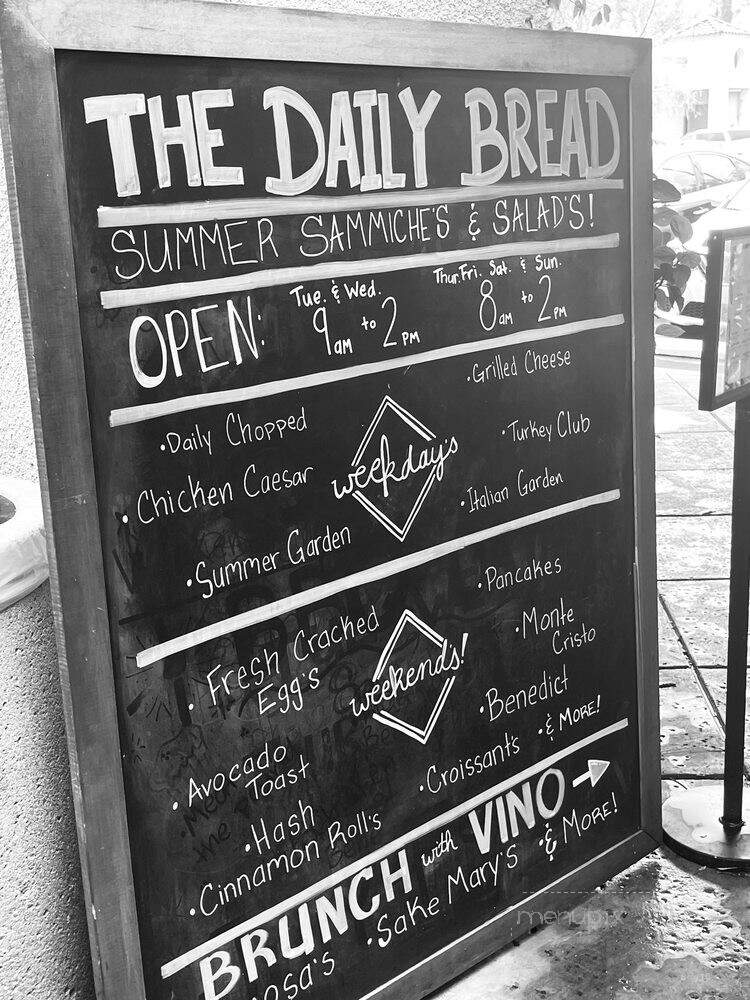 THE DAILY BREAD
SUMMER SAMMICHE'S & SALAD'S!
OPEN:
Tue. & Wed.
9 am to 2 PM
Thur. Fri. Sat. & Sun.
8 am to 2 PM
·Daily Chopped
·Chicken Caesar
·Summer Garden
weekday's
·Grilled Cheese
·Turkey Club
·Italian Garden
·Fresh Cracked
Egg's
·Avocado
Toast
·Hash
·Cinnamon Roll's
weekends!
·Pancakes
·Monte
Cristo
·Benedict
·Croissant's
·& MORE!
BRUNCH with VINO
·Sake Mary's
·& MORE!
menupix